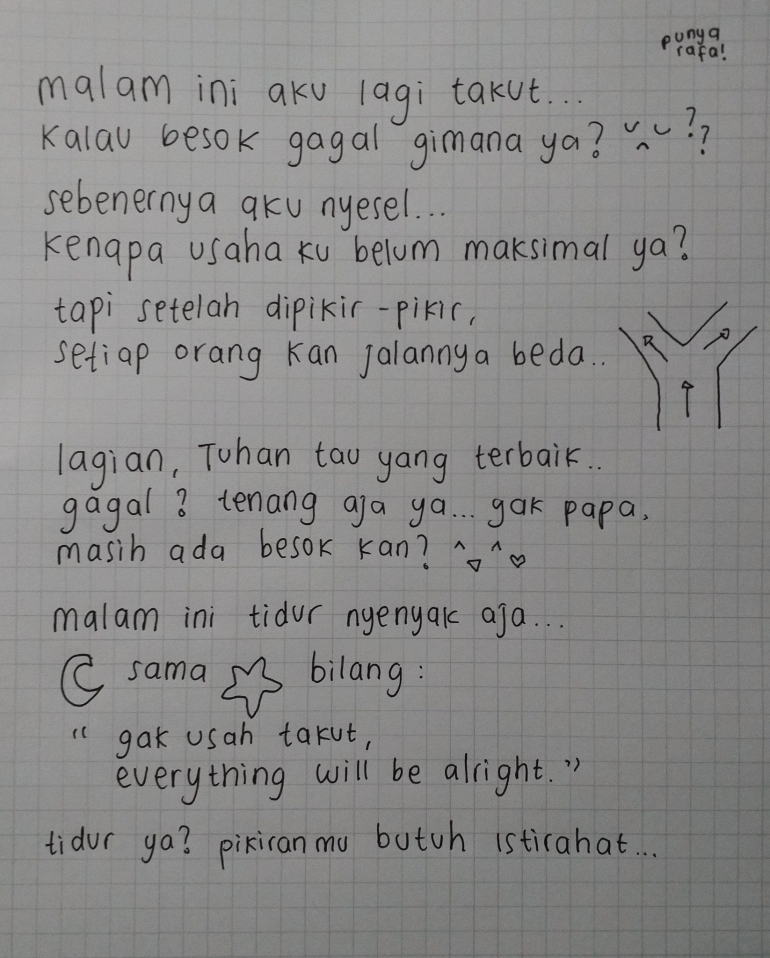 punya
rafa!
malam ini aku lagi takut...
kalau besok gagal gimana ya? ??
sebenernya aku nyesel...
kenapa usaha ku belum maksimal ya?
tapi setelah dipikir-pikir,
setiap orang kan jalannya beda..
lagian, Tuhan tau yang terbaik..
gagal? tenang aja ya... gak papa.
masih ada besok kan? ^▽^♡
malam ini tidur nyenyak aja...
☾ sama ☆ bilang:
"gak usah takut,
everything will be alright."
tidur ya? pikiran mu butuh istirahat...